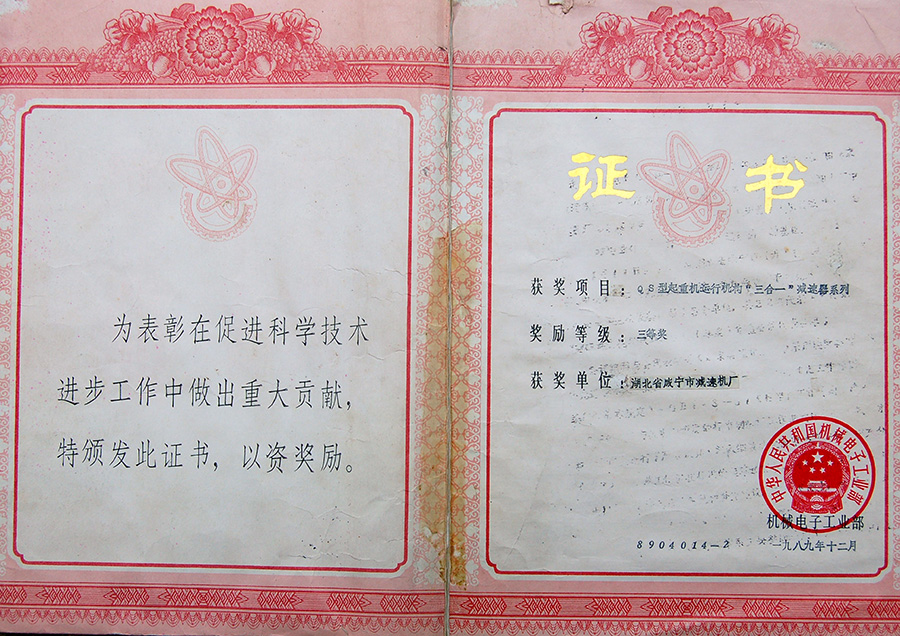 为表彰在促进科学技术
进步工作中做出重大贡献，
特颁发此证书，以资奖励。
证书
获奖项目：QS型起重机运行机构“三合一”减速器系列
奖励等级：三等奖
获奖单位：湖北省咸宁市减速机厂
中华人民共和国机械电子工业部
机械电子工业部
8904014-2
一九八九年十二月